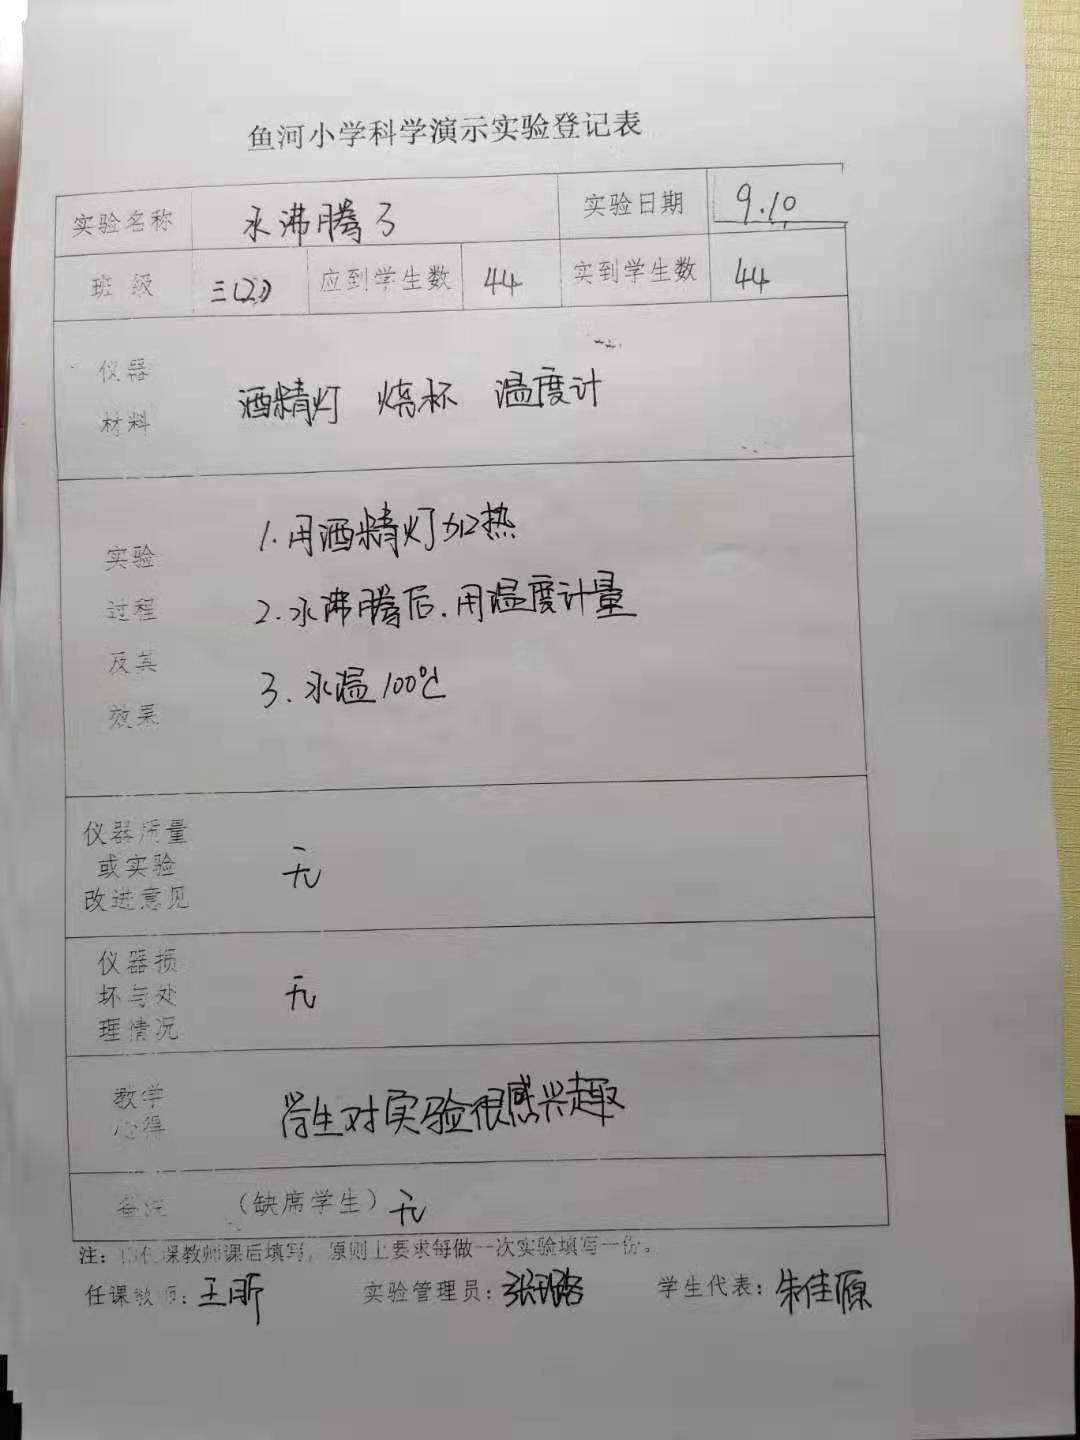 鱼河小学科学演示实验登记表
实验名称 水沸腾了 实验日期 9.10
班级 三(2) 应到学生数 44 实到学生数 44
仪器
材料
酒精灯 烧杯 温度计
实验
过程
及其
效果
1.用酒精灯加热
2.水沸腾后.用温度计量
3.水温100℃
仪器质量
或实验
改进意见
无
仪器损
坏与处
理情况
无
教学
心得
学生对实验很感兴趣
备注 （缺席学生）无
注：课教师课后填写，原则上要求每做一次实验填写一份。
任课教师：王昕 实验管理员：张 学生代表：朱佳源